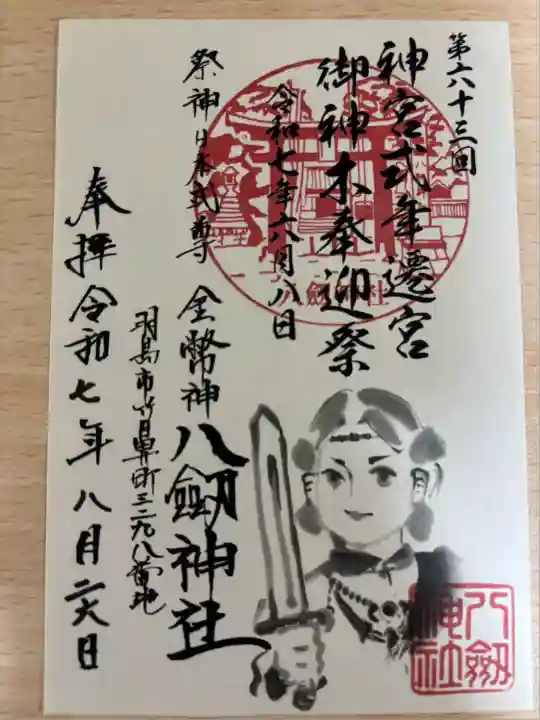 第六十三回
神宮式年遷宮
御神木奉迎祭
令和七年六月八日
祭神日本武尊
金幣神
八劔神社
羽島市竹鼻町三二九八番地
奉拝令和七年八月二六日
八劔神社
八劔神社